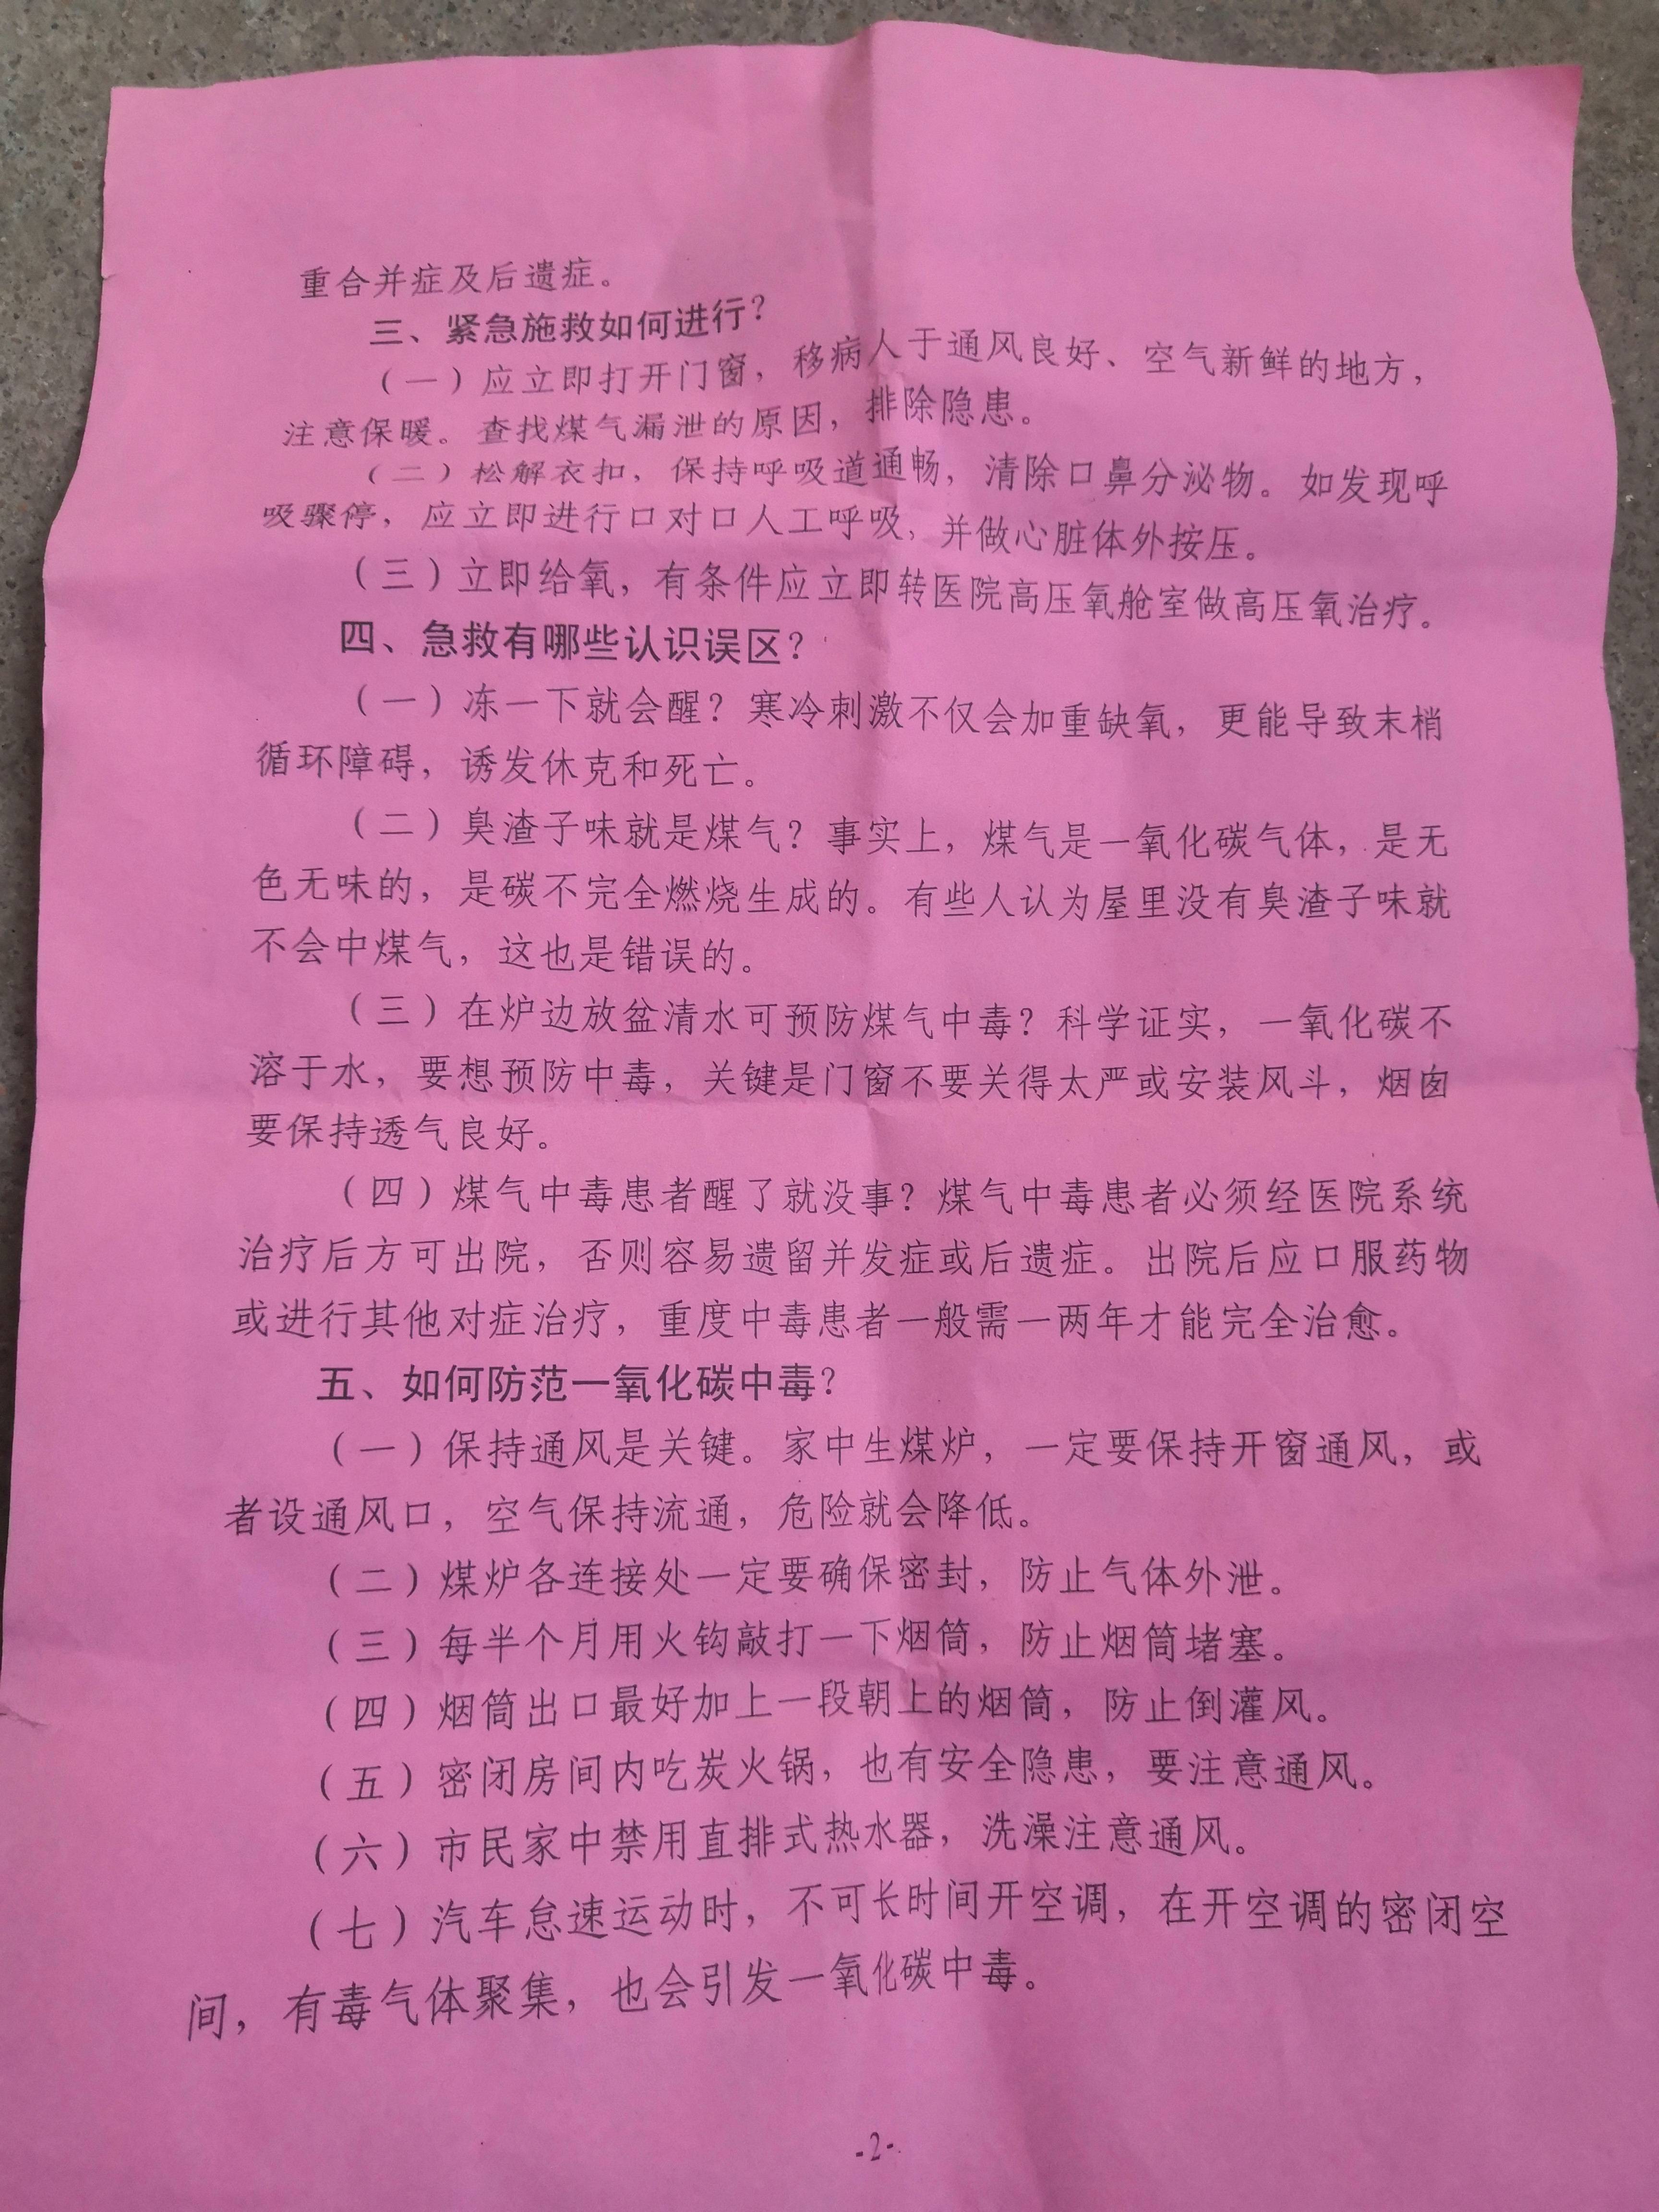 重合并症及后遗症。
三、紧急施救如何进行？
（一）应立即打开门窗，移病人于通风良好、空气新鲜的地方，
注意保暖。查找煤气漏泄的原因，排除隐患。
（二）松解衣扣，保持呼吸道通畅，清除口鼻分泌物。如发现呼
吸骤停，应立即进行口对口人工呼吸，并做心脏体外按压。
（三）立即给氧，有条件应立即转医院高压氧舱室做高压氧治疗。
四、急救有哪些认识误区？
（一）冻一下就会醒？寒冷刺激不仅会加重缺氧，更能导致末梢
循环障碍，诱发休克和死亡。
（二）臭渣子味就是煤气？事实上，煤气是一氧化碳气体，是无
色无味的，是碳不完全燃烧生成的。有些人认为屋里没有臭渣子味就
不会中煤气，这也是错误的。
（三）在炉边放盆清水可预防煤气中毒？科学证实，一氧化碳不
溶于水，要想预防中毒，关键是门窗不要关得太严或安装风斗，烟囱
要保持透气良好。
（四）煤气中毒患者醒了就没事？煤气中毒患者必须经医院系统
治疗后方可出院，否则容易遗留并发症或后遗症。出院后应口服药物
或进行其他对症治疗，重度中毒患者一般需一两年才能完全治愈。
五、如何防范一氧化碳中毒？
（一）保持通风是关键。家中生煤炉，一定要保持开窗通风，或
者设通风口，空气保持流通，危险就会降低。
（二）煤炉各连接处一定要确保密封，防止气体外泄。
（三）每半个月用火钩敲打一下烟筒，防止烟筒堵塞。
（四）烟筒出口最好加上一段朝上的烟筒，防止倒灌风。
（五）密闭房间内吃炭火锅，也有安全隐患，要注意通风。
（六）市民家中禁用直排式热水器，洗澡注意通风。
（七）汽车怠速运动时，不可长时间开空调，在开空调的密闭空
间，有毒气体聚集，也会引发一氧化碳中毒。
-2-